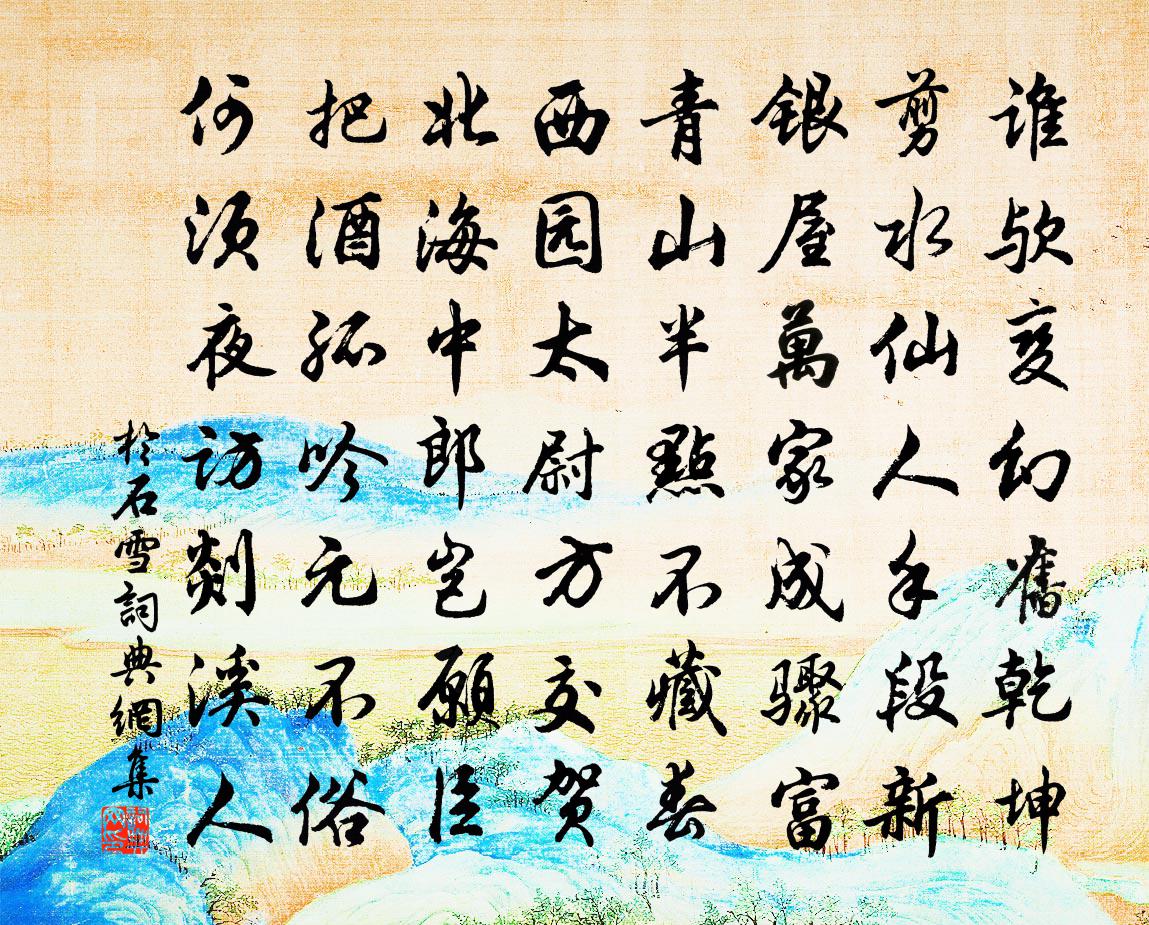 谁欤变幻舊乾坤
剪水仙人手段新
銀屋萬家成骤富
青山半點不藏春
西园太尉方交贺
北海中郎岂願臣
把酒孤吟元不俗
何须夜访剡溪人
於石雪詞典網集